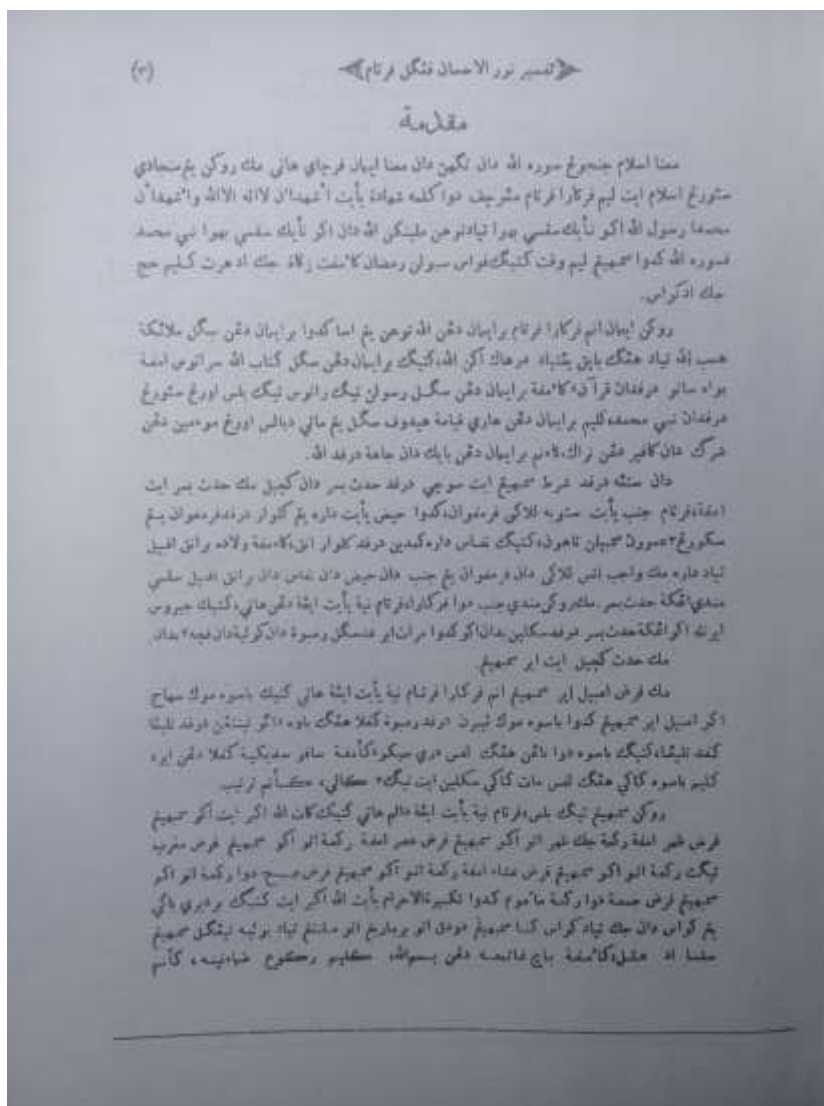 تفسير نور الاحسان ڤڠݢل ڤرتام (٣)
مقدمة
معنا اسلام جنجوڠ سوره الله دان تݢهن دان معنا ايمان ڤرچاي هاتي مك روكن يڠ منجادي
سئورڠ اسلام ايت ليم ڤركارا ڤرتام مڠوچف دوا كلمه شهادة يأيت اشهد ان لااله الاالله واشهد ان
محمدا رسول الله اكو نأيك سقسي بهوا تيادتوهن ملينكن الله دان اكو نأيك سقسي بهوا نبي محمد
ڤسوره الله كدوا سمبهيڠ ليم وقت كتيݢ ڤواس سبولن رمضان كأمڤت زكاة جك اد هرت كليم حج
جك ادكواس.
روكن ايمان انم ڤركارا ڤرتام برايمان دڠن الله توهن يڠ اسا كدوا برايمان دڠن سݢل ملائكة
حمب الله تياد هڠݢ باڽق بيلڠن درهاك اكن الله كتيݢ برايمان دڠن سݢل كتاب الله سراتوس امڤت
بواه ساتو درڤدان قرآن كأمڤت برايمان دڠن سݢل رسولن تيݢ راتوس تيݢ بلس اورڠ سئورڠ
درڤدان نبي محمد كليم برايمان دڠن هاري قيامة هيدوف سݢل يڠ ماتي دبالس اورڠ مؤمين دڠن
شرݢ دان كافير دڠن نراك كأنم برايمان دڠن بايك دان جاهة درڤد الله.
دان ستڠه درڤد شرط سمبهيڠ ايت سوچي درڤد حدث بسر دان كچيل مك حدث بسر ايت
امڤت ڤرتام جنب يأيت ستوبه للاكي ڤرمڤوان كدوا حيض يأيت داره يڠ كلوار درڤد ڤرمڤوان يڠ
سكورڠ٢ عمورن سمبيلن تاهون كتيݢ نفاس داره كمدين درڤد كلوار انق كأمڤت ولاده برانق اڤبيل
تياد داره مك واجب اتس للاكي دان ڤرمڤوان يڠ جنب دان حيض دان نفاس دان برانق اڤبيل سلسي
مندي اڠكة حدث بسر. مك روكن مندي جنب دوا ڤركارا ڤرتام نية يأيت اڠة دڠن هاتي كتيك جيروس
اير اكو اڠكة حدث بسر درڤد سكلين بدان اكو كدوا مرات اير ڤد سݢل رسوة دان كوليت دان ڤچه٢ بدان.
مك حدث كچيل ايت اير سمبهيڠ.
مك فرض امبيل اير سمبهيڠ انم ڤركارا ڤرتام نية يأيت اڠة هاتي كتيك باسوه موك سهاج
اكو امبيل اير سمبهيڠ كدوا باسوه موك درڤد رسوة كڤلا هڠݢ باوه داݢو درڤد تليڠا
كڤد تليڠا كتيݢ باسوه دوا تاڠن هڠݢ لڤس دري سيكو كأمڤت ساڤو سديكية كڤلا دڠن اير
كليم باسوه كاكي هڠݢ لڤس مات كاكي سكلين ايت تيݢ٢ كالي، كأنم ترتيب.
روكن سمبهيڠ تيݢ بلس ڤرتام نية يأيت اڠة دالم هاتي كتيك كات الله اكبر ايت اكو سمبهيڠ
فرض ظهر امڤت ركعة جك ظهر اتو اكو سمبهيڠ فرض عصر امڤت ركعة اتو اكو سمبهيڠ فرض مغرب
تيݢ ركعة اتو اكو سمبهيڠ فرض عشاء امڤت ركعة اتو اكو سمبهيڠ فرض صبح دوا ركعة اتو اكو
سمبهيڠ فرض جمعة دوا ركعة مأموم كدوا تكبيرةالاحرام يأيت الله اكبر ايت كتيݢ برديري باݢي
يڠ كواس دان جك تياد كواس كنا سمبهيڠ دودق اتو برباريڠ اتو تياد بوليه تيڠݢل سمبهيڠ
سلما اد عقل كأمڤت باچ فاتحه دڠن بسم الله، كليم ركوع طمأنينه، كأنم